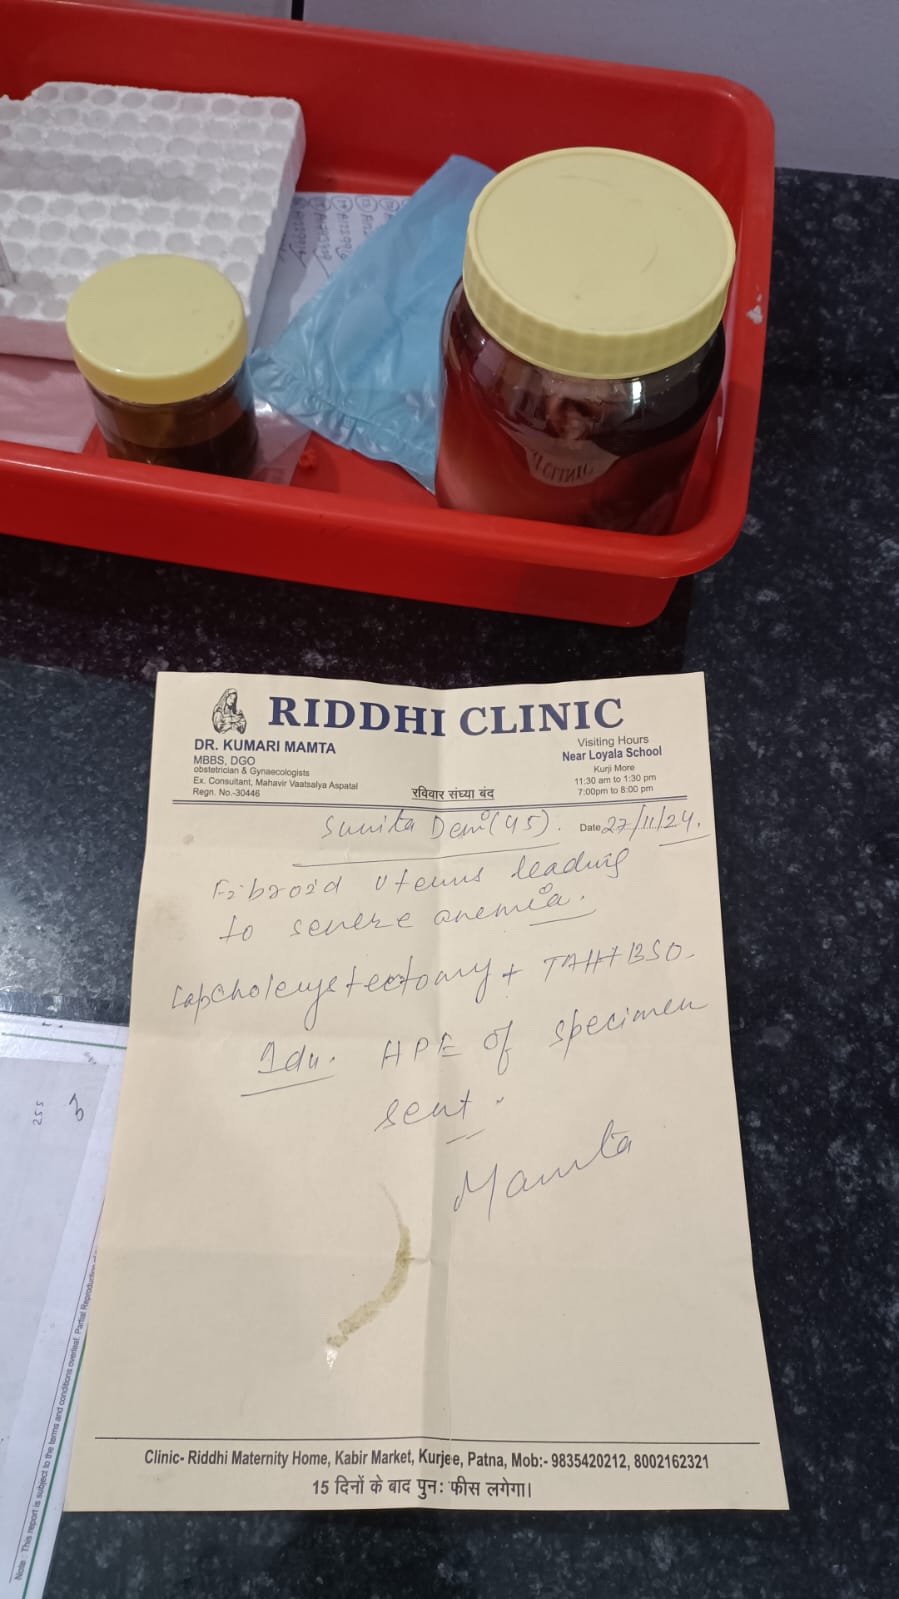 RIDDHI CLINIC
DR. KUMARI MAMTA
MBBS, DGO
obstetrician & Gynaecologists
Ex. Consultant, Mahavir Vaatsalya Aspatal
Regn. No.-30446
रविवार संध्या बंद
Visiting Hours
Near Loyala School
Kurji More
11:30 am to 1:30 pm
7:00pm to 8:00 pm
Sunita Devi (45). Date 27/11/24.
Fibroid uterus leading
to severe anemia.
Lapcholecystectomy + TAH+BSO.
Adv. HPE of specimen
sent.
Mamta
Clinic- Riddhi Maternity Home, Kabir Market, Kurjee, Patna, Mob:- 9835420212, 8002162321
15 दिनों के बाद पुनः फीस लगेगा।
255
Note : This report is subject to the terms and conditions overleaf. Partial Reproduction
CLINIC